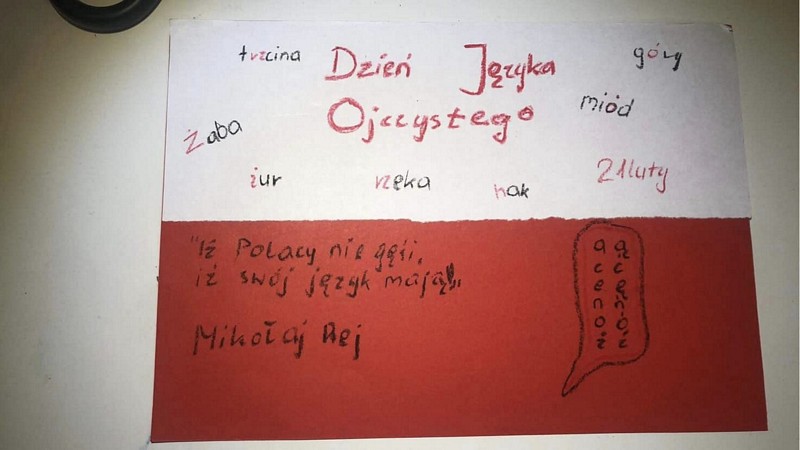 trzcina
Dzień Języka
góry
Ojczystego
miód
Żaba
żur
rzeka
hak
21luty
"Iż Polacy nie gęśi,
iż swój język mają!"
Mikołaj Rej
a ą
c ć
e ę
n ń
o ó
z ż